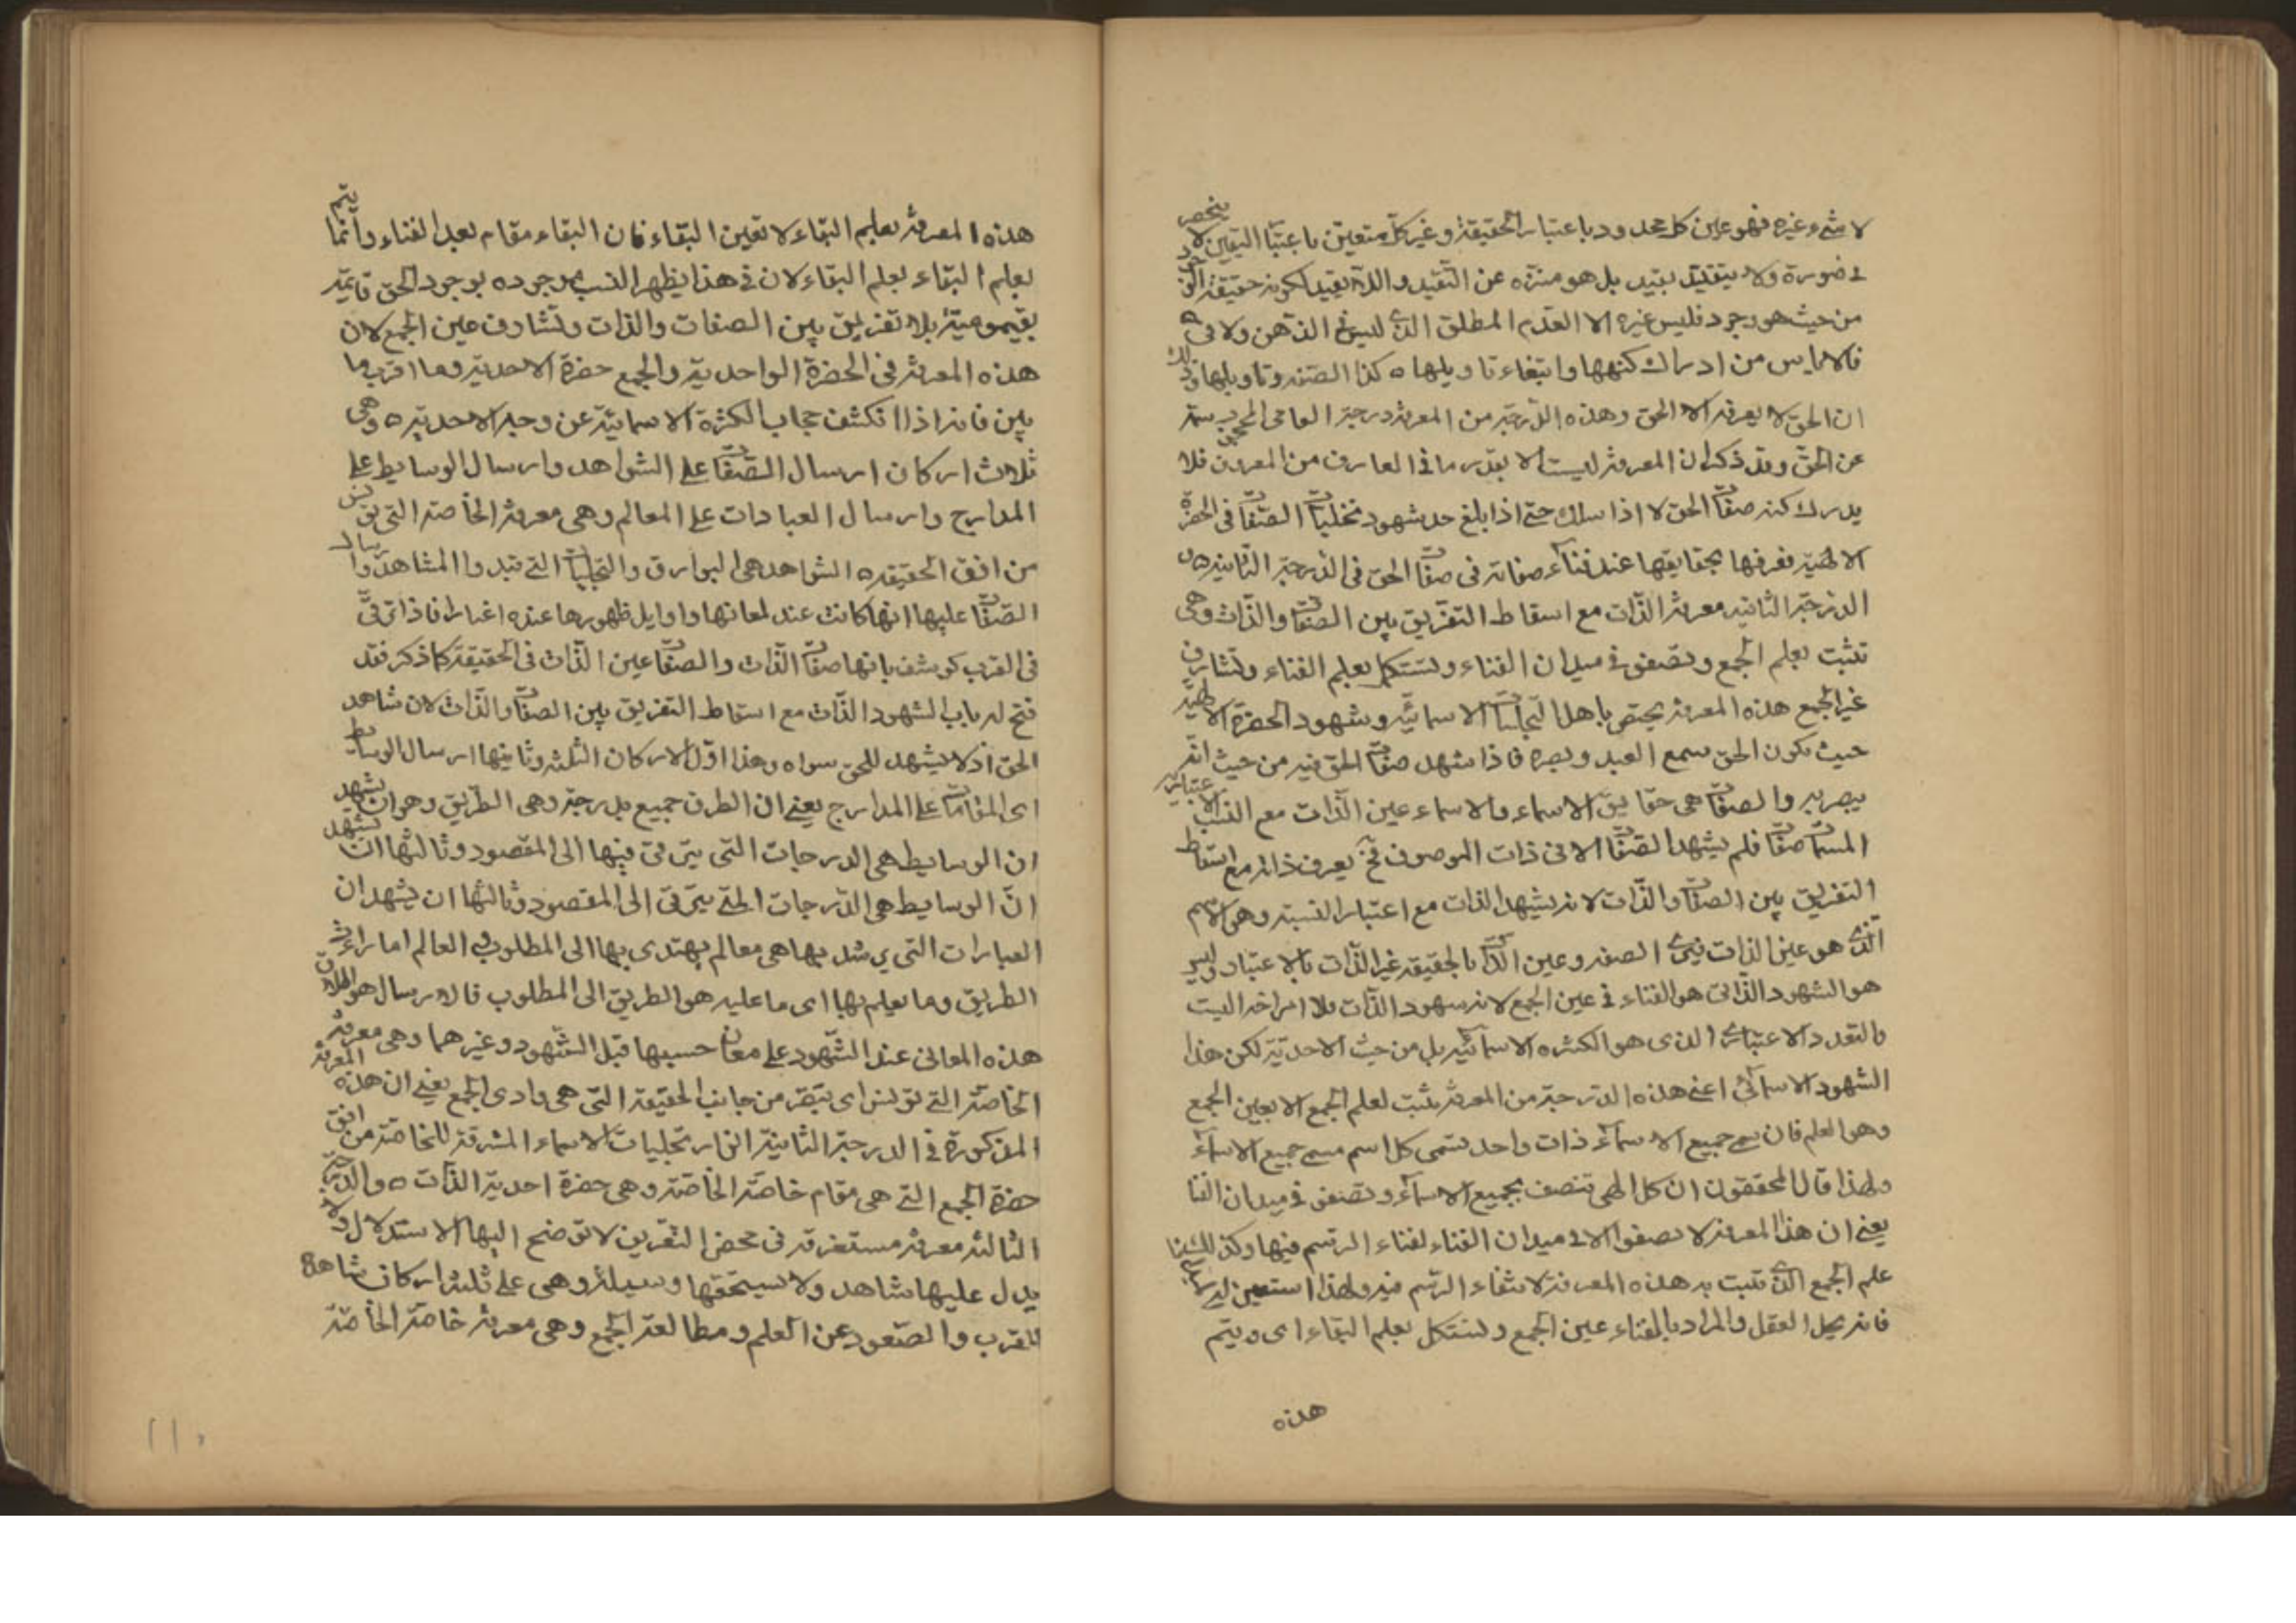 لا شيء غيره فهو عين كل محدود باعتبار الحقيقة وغير كل متعين باعتبار التعين لا ينحصر
في صورة ولا يتقيد بقيد بل هو منزه عن التقيد واللا تقيد لكونه حقيقة
من حيث هو وجود فليس غيره الا العدم المطلق الذي ليس في الذهن ولا في
فالاياس من ادراك كنهها وابتغاء تاويلها ه كذا الصفة وتاويلها وذلك
ان الحق لا يعرفه الا الحق وهذه الدرجة من المعرفة درجة العامى المحجوب
عن الحق وقد ذكر ان المعرفة ليست الا بقدر ما في العارف من المعروف فلا
يدرك كنه صفات الحق لا اذا سلك حتى اذا بلغ حد شهود تجليات الصفات في الحضرة
الالهية فعرفها بحقايقها عند فناء صفاته في صفات الحق في الدرجة الثانية ه
الدرجة الثانية معرفة الذات مع اسقاط التفريق بين الصفات والذات وهى
تثبت بعلم الجمع وتصفو في ميدان الفناء وتستكمل بعلم الفناء وتشارف
غير الجمع هذه المعرفة يختص باهل التجليات الاسمائية وشهود الحضرة الالهية
حيث يكون الحق سمع العبد وبصره فاذا شهد صفات الحق فيه من حيث انه
يبصر به والصفات هى حقايق الاسماء والاسماء عين الذات مع النسب الاعتبارية
المسماة صفات فلم يشهد الصفات الا في ذات الموصوف فح يعرف ذاته مع اسقاط
التفريق بين الصفات والذات لانه يشهد الذات مع اعتبار النسبة وهو الاسم
الذي هو عين الذات فيرى الصفة وعين الذات بالحقيقة غير الذات بالاعتبار وليس
هو الشهود الذاتى هو الفناء في عين الجمع لانه شهود الذات بلا
بالتعدد الاعتباري الذى هو الكثره الاسمائيه بل من حيث الاحدية لكن هذا
الشهود الاسمائى اعنى هذه الدرجة من المعرفة يثبت لعلم الجمع الا بعين الجمع
وهو العلم فان مسمى جميع الاسماء ذات واحد يسمى كل اسم مسمى جميع الاسماء
ولهذا قال المحققون ان كل الهى تتصف بجميع الاسماء وتصفو في ميدان الفنا
يعني ان هذا المعرفة لا تصفوا الا في ميدان الفناء لفناء الرسم فيها وكذا
علم الجمع الذي تثبت به هذه المعرفة لانتفاء الرسم فيه ولهذا
فانه يحل العقل والمراد بالفناء عين الجمع وتستكمل بعلم البقاء اى ويتم
هذه
هذه المعرفة بعلم البقاء لا بعين البقاء فان البقاء مقام بعد الفناء وانما يتم
بعلم البقاء بعلم البقاء لان في هذا يظهر النسب موجوده بوجود الحق قايمة
بقيوميته بلا تفريق بين الصفات والذات وتشارف عين الجمع لان
هذه المعرفة في الحضرة الواحدية والجمع حضرة الاحدية وما اقرب ما
بين فانه اذا انكشف حجاب الكثرة الاسمائية عن وجه الاحدية ه وهى
ثلاث اركان ارسال الصفات على الشواهد وارسال الوسايط على
المدارج وارسال العبادات على المعالم وهى معرفة الخاصة التى تونس
من افق الحقيقه ه الشواهد هى البوارق والتجليات التي تبدوا المشاهد وارسال
الصفات عليها انها كانت عند لمعانها واوايل ظهورها عنده اغيارا فاذا ترقى
في القرب كوشف بانها صفات الذات والصفات عين الذات في الحقيقة كما ذكر فقد
فتح له باب الشهود الذات مع اسقاط التفريق بين الصفات والذات لان شاهد
الحق اذ لا يشهد للحق سواه وهذا اول الاركان الثلثة وثانيها ارسال الوسايط
اى المقامات على المدارج يعني ان الطرق جميع مدرجة وهى الطريق وهو ان يشهد
ان الوسايط هى الدرجات التى يترقى فيها الى المقصود وثالثها ان يشهد
ان الوسايط هى الدرجات التي يترقى الى المقصود وثالثها ان يشهد ان
العبارات التى يرشد بها هى معالم يهتدى بها الى المطلوب في العالم امارات
الطريق وما يعلم بها اى ما عليه هو الطريق الى المطلوب فالارسال هو اطلاق
هذه المعانى عند الشهود على معان حسبها قبل الشهود وغيرهما وهى معرفة
الخاصة التي تونس اى تبصر من جانب الحقيقة التى هى وادى الجمع يعني ان هذه المعرفة
المذكورة في الدرجة الثانية انوار تجليات الاسماء المشرقة للخاصة من افق
حضرة الجمع التي هى مقام خاصة الخاصة وهى حضرة احدية الذات ه والدرجة
الثالثة معرفة مستغرقة فى محض التعريف لا توضح اليها الاستدلال ولا
يدل عليها شاهد ولا يستحقها وسيلة وهى على ثلثة اركان مشاهدة
القرب والصعود عن العلم ومطالعة الجمع وهى معرفة خاصة الخاصة